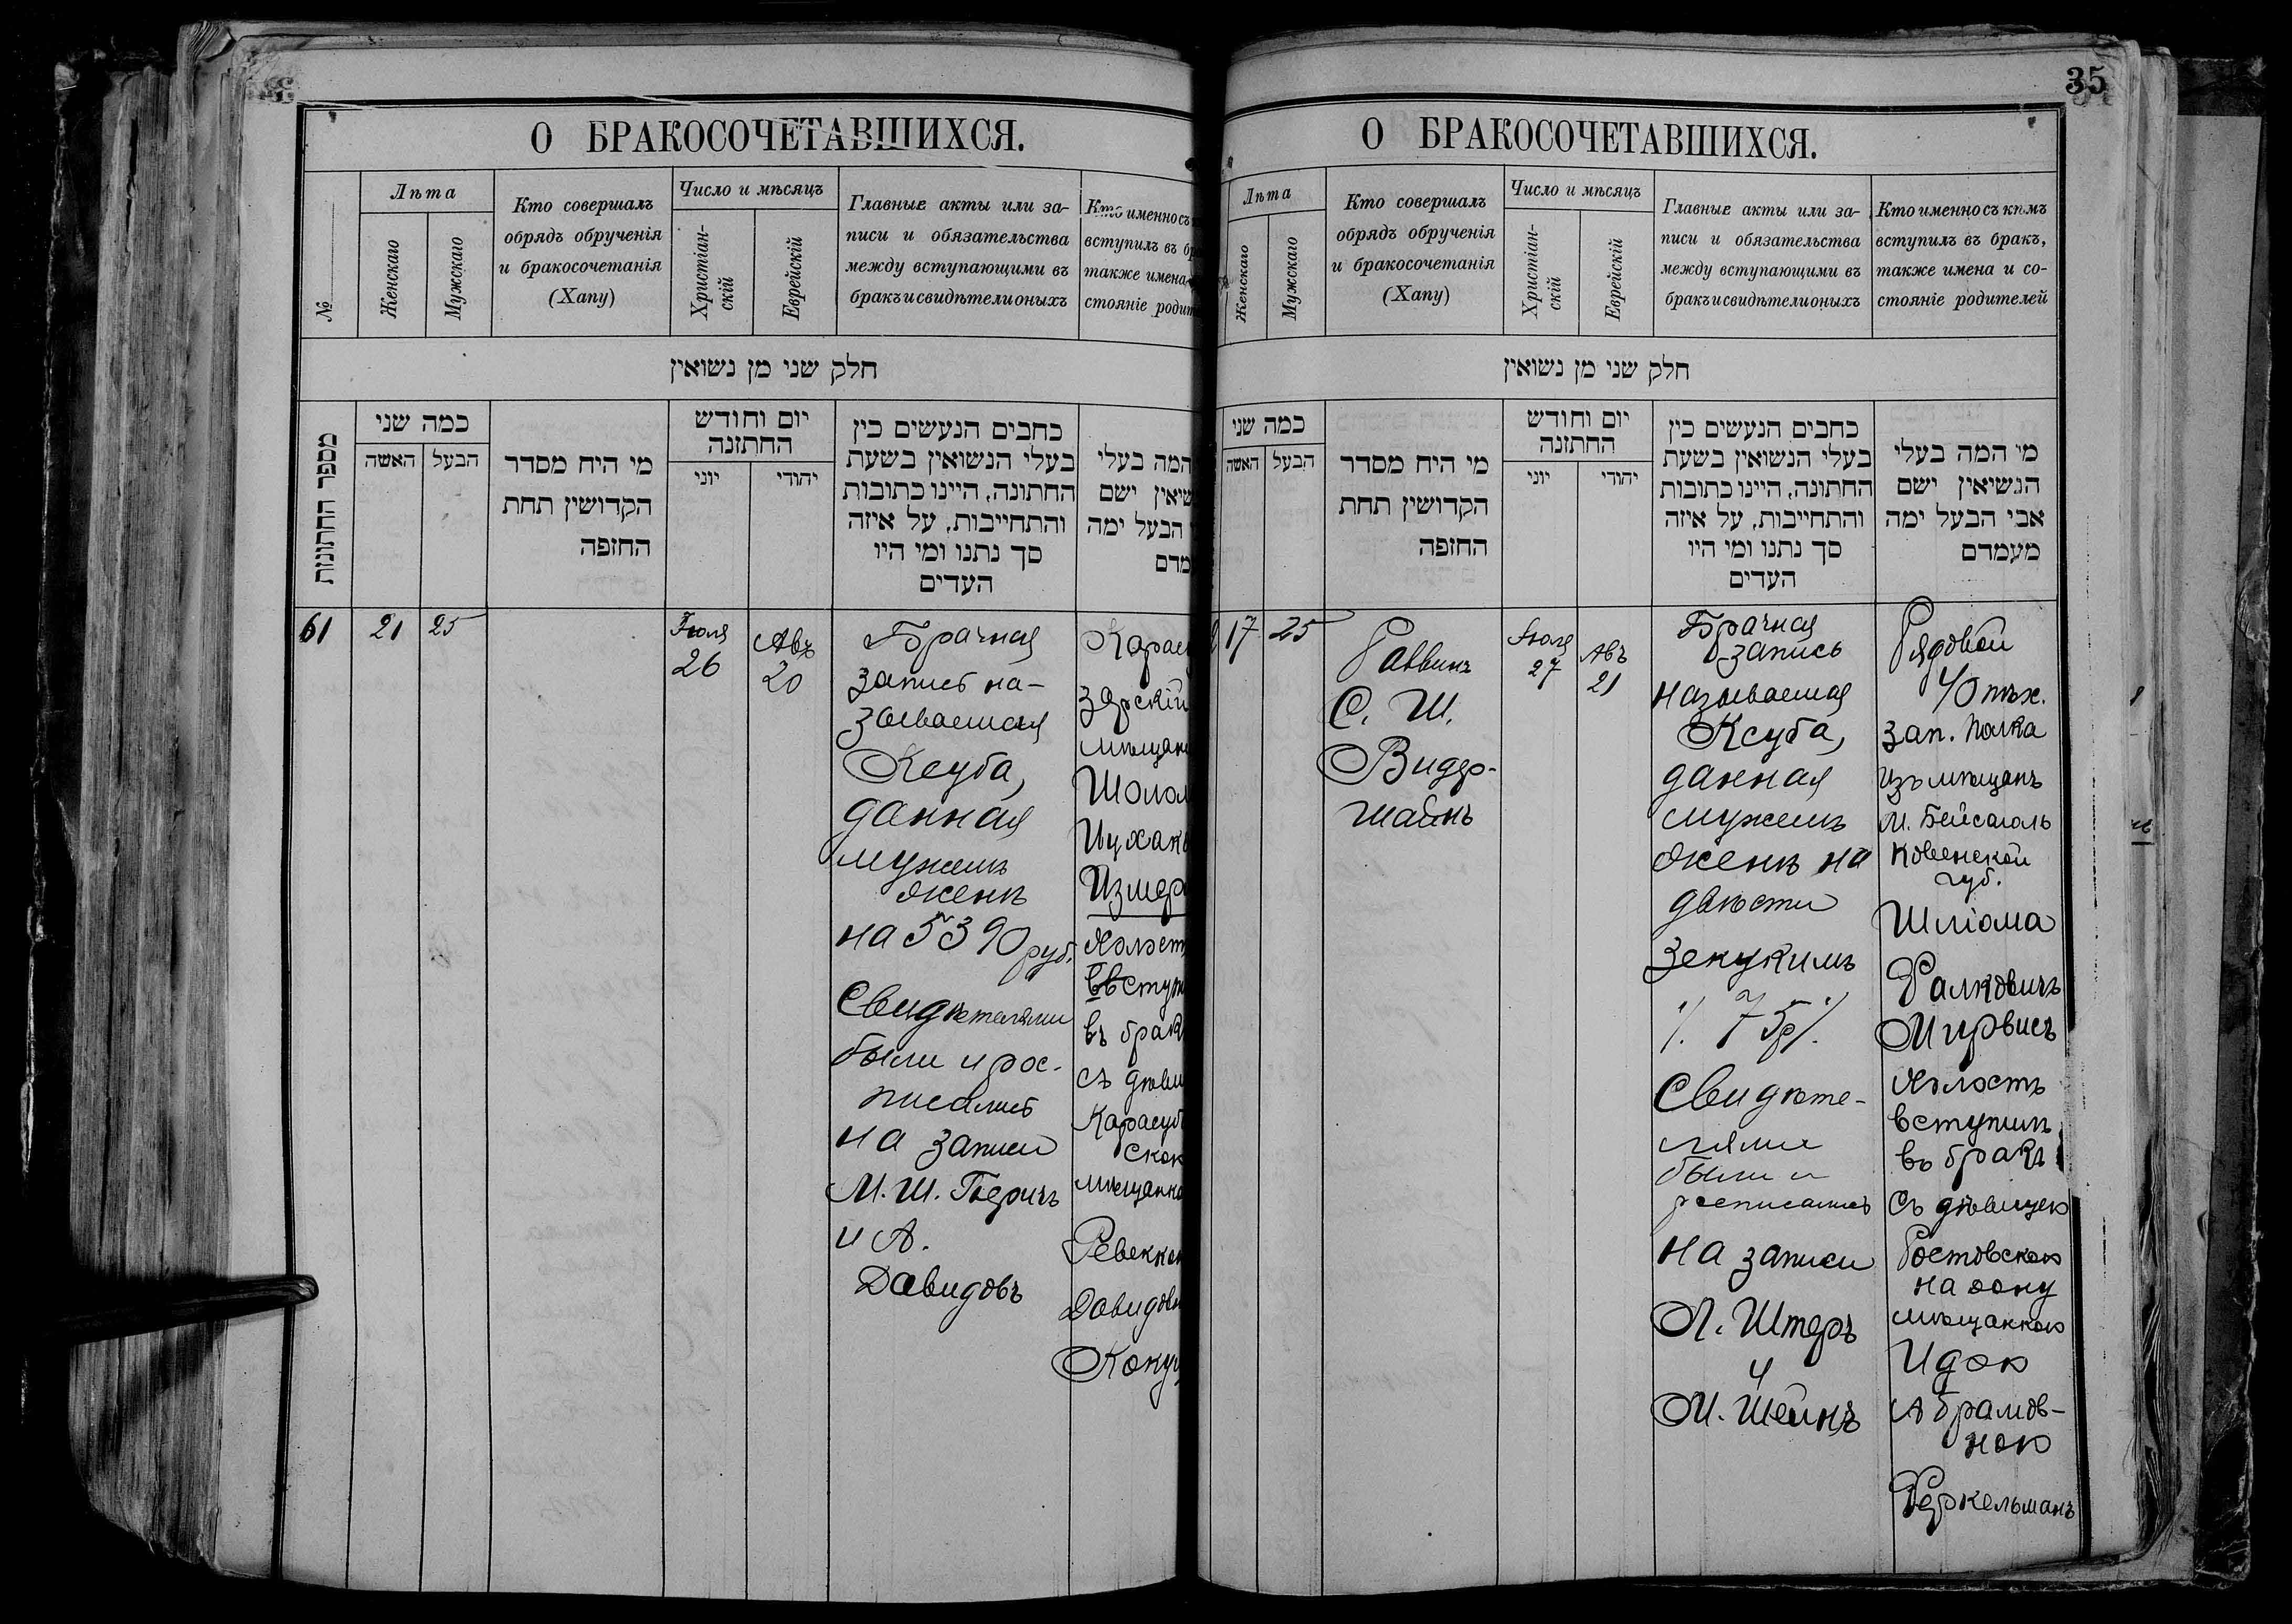 35
О БРАКОСОЧЕТАВШИХСЯ.
№
Лѣта
Женскаго
Мужскаго
Кто совершалъ
обрядъ обрученія
и бракосочетанія
(Хапу)
Число и мѣсяцъ
Христіан-
скій
Еврейскій
Главные акты или за-
писи и обязательства
между вступающими въ
бракъ и свидѣтели оныхъ
Кто именно съ
вступилъ въ бр
также имена
стояніе роди
חלק שני מן נשואין
מספר החתונות
כמה שני
האשה
הבעל
מי היח מסדר
הקדושין תחת
החופה
יום וחודש
החתונה
יוני
יהודי
כחבים הנעשים כין
בעלי הנשואין בשעת
החתונה, היינו כתובות
והתחייבות, על איזה
סך נתנו ומי היו
העדים
המה בעלי
שיאין ישם
הבעל ימה
מדם
61
21
25
Іюля
26
Авъ
20
Брачная
запись на-
зываемая
Ксуба,
данная
мужемъ
женѣ
на 5390 руб.
Свидѣтелями
были и рос-
писались
на записи
М. Ш. Гверичъ
и А.
Давидовъ
Карас
зярскій
мѣщан
Шолом
Ицхак
Измер
Холост
вступи
въ брак
съ дѣви
Карасуб
ско
мѣщанк
Ревекко
Давидов
Коку
О БРАКОСОЧЕТАВШИХСЯ.
Лѣта
Женскаго
Мужскаго
Кто совершалъ
обрядъ обрученія
и бракосочетанія
(Хапу)
Число и мѣсяцъ
Христіан-
скій
Еврейскій
Главные акты или за-
писи и обязательства
между вступающими въ
бракъ и свидѣтели оныхъ
Кто именно съ кѣмъ
вступилъ въ бракъ,
также имена и со-
стояніе родителей
חלק שני מן נשואין
כמה שני
האשה
הבעל
מי היח מסדר
הקדושין תחת
החופה
יום וחודש
החתונה
יוני
יהודי
כחבים הנעשים כין
בעלי הנשואין בשעת
החתונה, היינו כתובות
והתחייבות, על איזה
סך נתנו ומי היו
העדים
מי המה בעלי
הנשיאין ישם
אבי הבעל ימה
מעמדם
17
25
Раввинъ
С. Ш.
Видер-
шайнъ
Іюля
27
Авъ
21
Брачная
запись
называемая
Ксуба,
данная
мужемъ
женѣ на
двѣсти
зекукимъ
/. 75р/.
Свидѣте-
лями
были и
росписались
на записи
Л. Штеръ
и
М. Шейнъ
Рядовой
40 пѣх.
зап. полка
изъ мѣщанъ
М. Бейсаголь
Ковенской
губ.
Шліома
Фалковичъ
Мирвисъ
Холостъ
вступилъ
въ бракъ
съ дѣвицею
Ростовскою
на дону
мѣщанкою
Идою
Абрамов-
ною
Феркельманъ